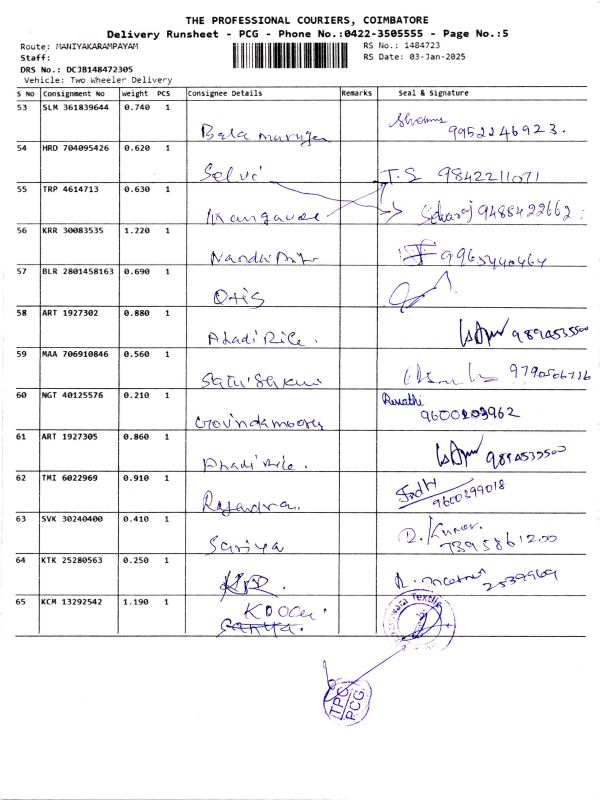 THE PROFESSIONAL COURIERS, COIMBATORE
Delivery Runsheet - PCG - Phone No.:0422-3505555 - Page No.:5
Route: MANIYAKARAMPAYAM
RS No.: 1484723
Staff:
RS Date: 03-Jan-2025
DRS No.: DCJB148472305
Vehicle: Two Wheeler Delivery
S No Consignment No Weight PCS Consignee Details Remarks Seal & Signature
53 SLM 361839644 0.740 1
Bala murugan 9952246923.
54 HRD 704095426 0.620 1
Selvi T.S 9842211071
55 TRP 4614713 0.630 1
9488422662
56 KRR 30083535 1.220 1
9965440464
57 BLR 2801458163 0.690 1
Otis
58 ART 1927302 0.880 1
Ahadi Rice. 9894535500
59 MAA 706910846 0.560 1
60 NGT 40125576 0.210 1
Revathi
Govindamoorthy 9600203962
61 ART 1927305 0.860 1
Ahadi Rice. 9894535500
62 TMI 6022969 0.910 1
Rajendra. 9600399018
63 SVK 30240400 0.410 1
Sariya R. Kumar.
7395861200
64 KTK 25280563 0.250 1
2539969
65 KCM 13292542 1.190 1
TPC
PCG